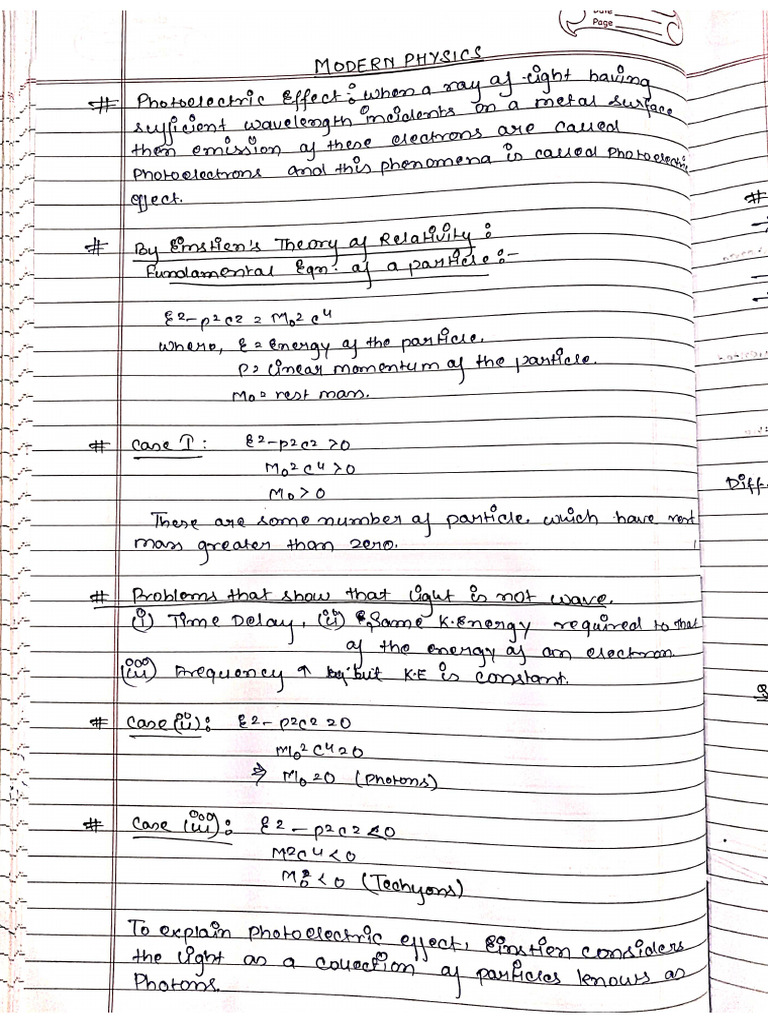 Date
Page
MODERN PHYSICS
# Photoelectric Effect: when a ray of light having
sufficient wavelength incidents on a metal surface
then emission of these electrons are called
Photoelectrons and this phenomena is called Photoelectric
effect.
# By Einstien's Theory of Relativity:
Fundamental Eqn. of a particle:-
E²-p²c² = M₀²c⁴
where, E = Energy of the particle.
P = linear momentum of the particle.
M₀ = rest mass.
# Case I: E²-p²c² >0
M₀²c⁴>0
M₀>0
There are some number of particle, which have rest
mass greater than zero.
# Problems that show that light is not wave.
(i) Time Delay, (ii) Same K.Energy required to that
of the energy of an electron.
(iii) Frequency ↑ but K.E is constant.
# Case (ii): E²-p²c² =0
M₀²c⁴=0
⇒ M₀=0 (Photons)
# Case (iii): E²-p²c² <0
M²c⁴<0
M₀²<0 (Techyons)
To explain photoelectric effect, Einstien considers
the light as a collection of particles knows as
Photons.
#
Diff